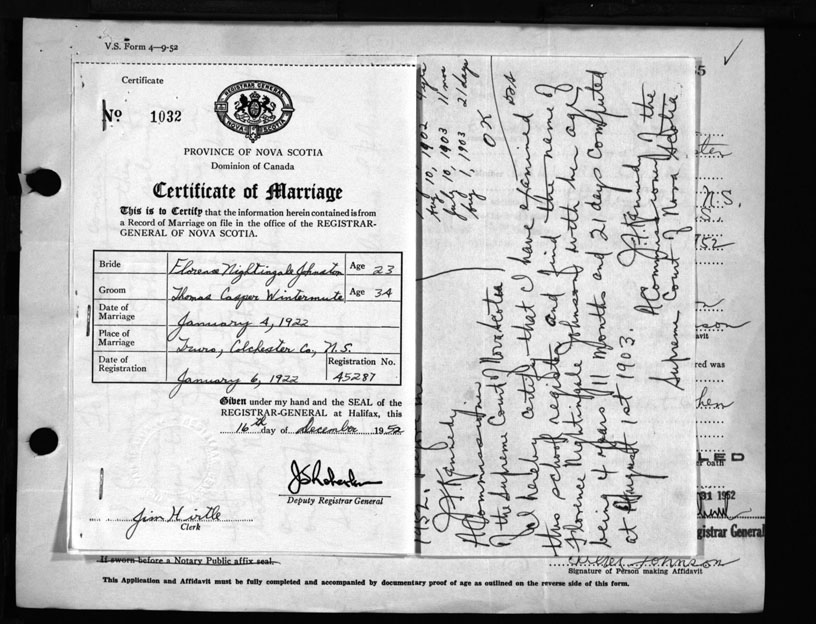 V.S. Form 4—9-52
Certificate
No 1032
REGISTRAR GENERAL
NOVA SCOTIA
PROVINCE OF NOVA SCOTIA
Dominion of Canada
Certificate of Marriage
This is to Certify that the information herein contained is from
a Record of Marriage on file in the office of the REGISTRAR-
GENERAL OF NOVA SCOTIA.
Bride Florence Nightingale Johnston Age 23
Groom Thomas Casper Wintermute Age 34
Date of Marriage January 4, 1922
Place of Marriage Truro, Colchester Co., N.S.
Date of Registration January 6, 1922 Registration No. 45287
Given under my hand and the SEAL of the
REGISTRAR-GENERAL at Halifax, this
16th day of December 1952
Deputy Registrar General
Jim Hirtle
Clerk
If sworn before a Notary Public affix seal.
This Application and Affidavit must be fully completed and accompanied by documentary proof of age as outlined on the reverse side of this form.
10, 1902
Aug 10, 1903 11 mos
July 10, 1903 21 days
Aug 1, 1903
OK
1952.
J.F. Kennedy
A Commissioner
of the Supreme Court of Nova Scotia
I hereby certify that I have examined
this school register and find the name of
Florence Nightingale Johnson with her age
being 4 years 11 months and 21 days computed
at August 1st 1903.
J.F. Kennedy
A Commissioner of the
Supreme Court of Nova Scotia
N.S.
red was
31 1952
gistrar General
Johnson
Signature of Person making Affidavit